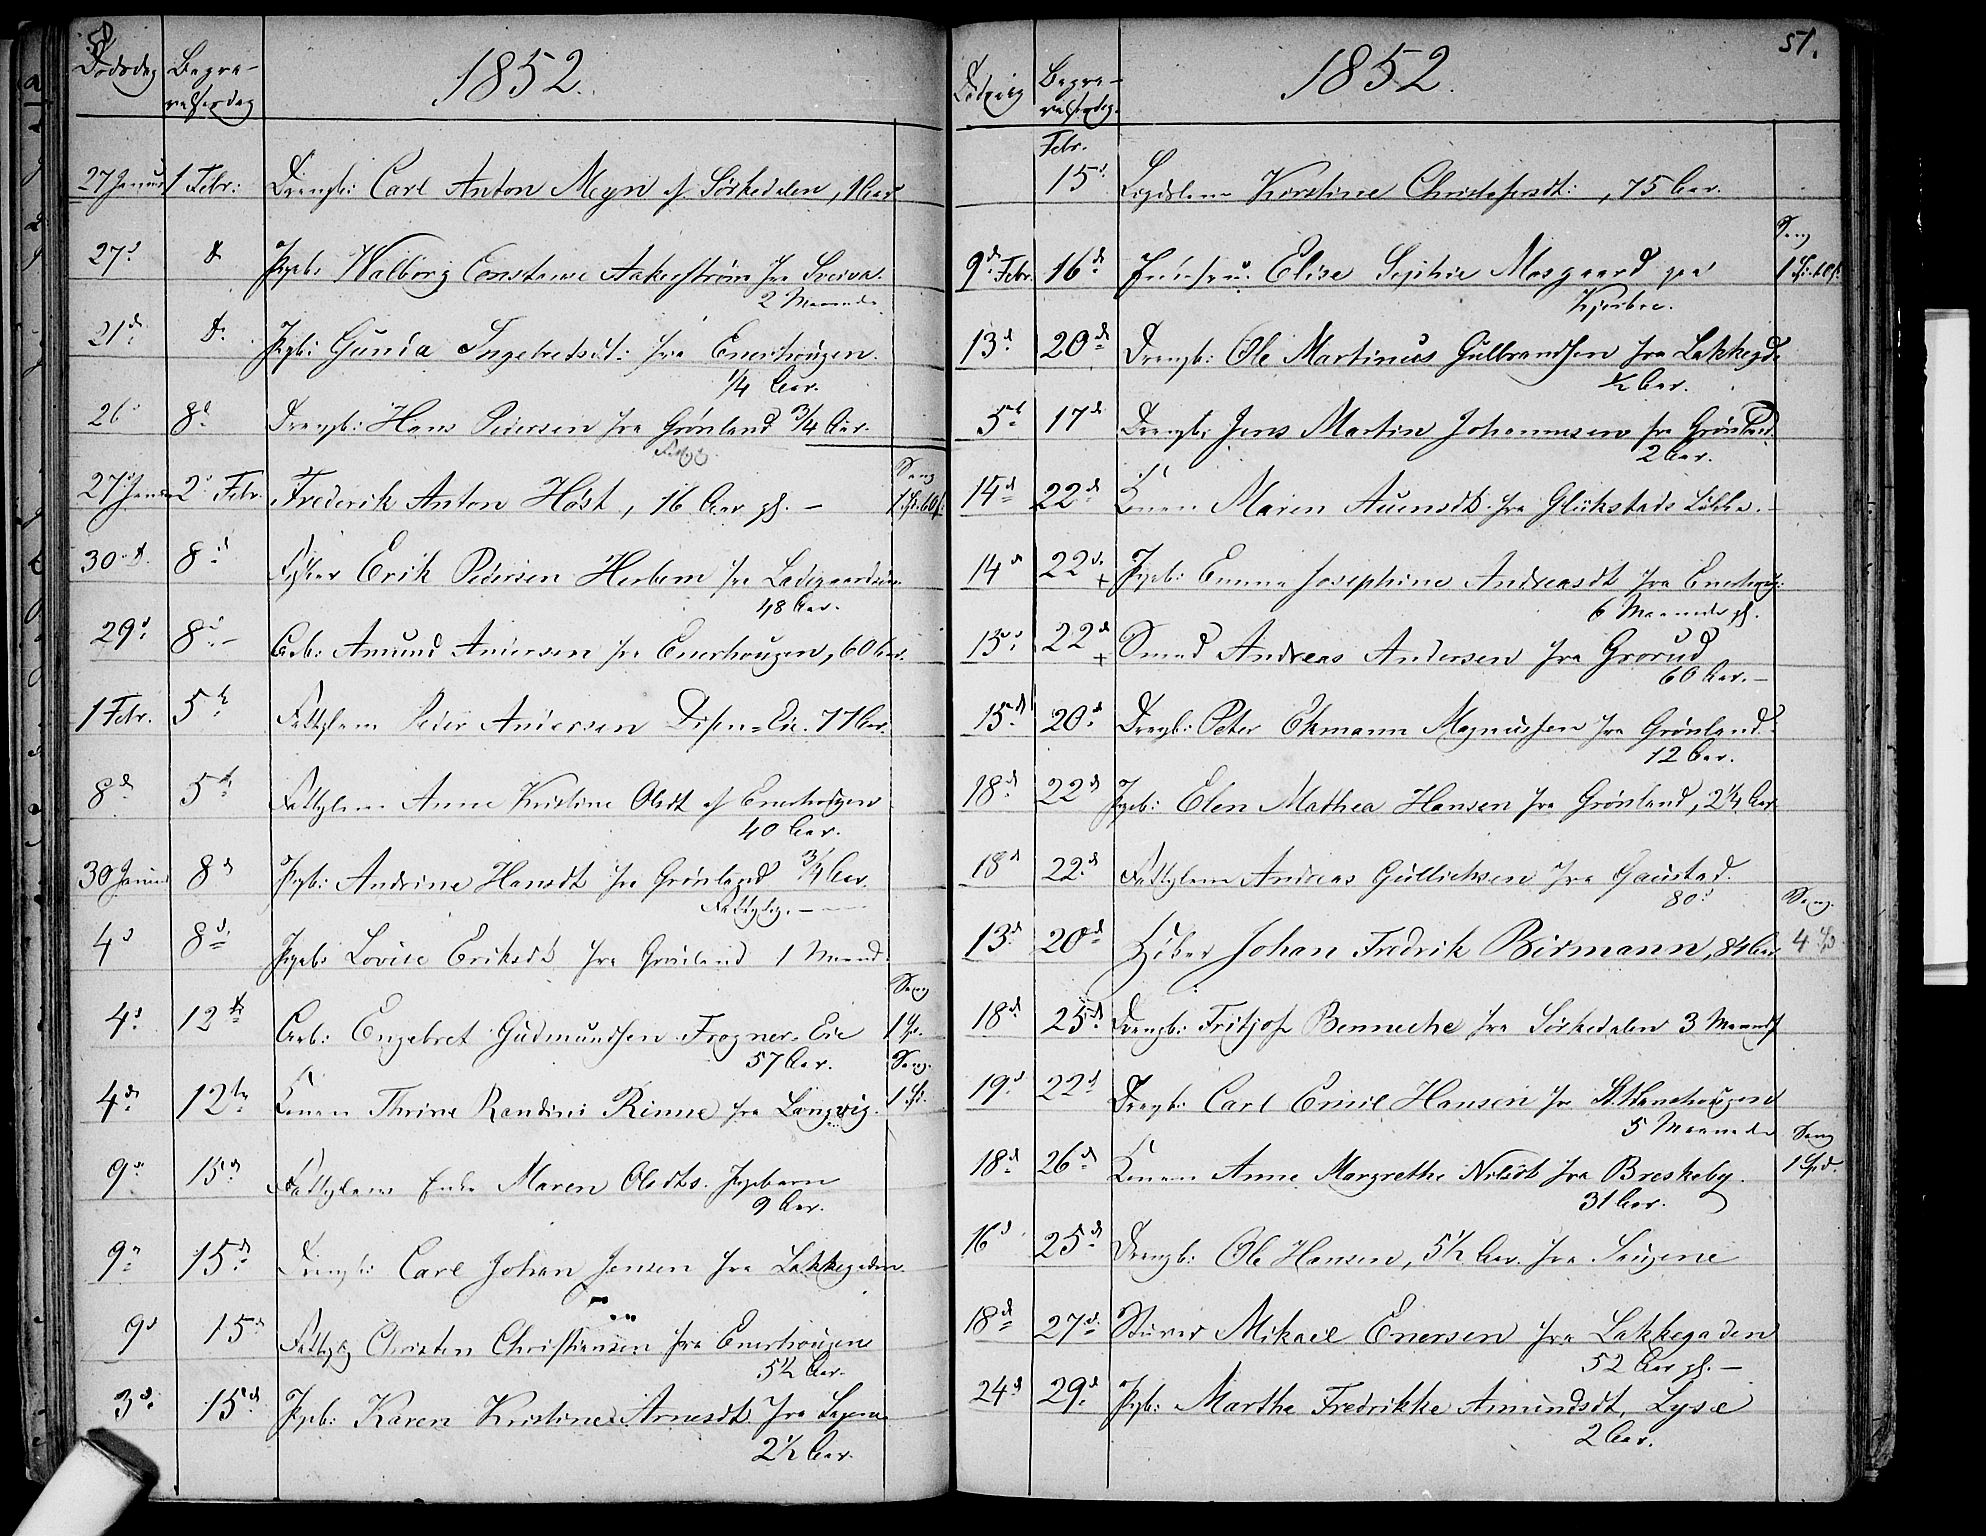 50
Dødsdag Begravelsesdag 1852.
27 Januar 1 Febr: Drengb: Carl Anton Meyn af Sørkedalen, 1 Aar
27d d. Pigeb: Walborg Constance Aakerstrøm fra
2 Maaneder
21d d. Pigeb: Gunda Ingebredsdt: fra Enerhougen.
1/4 Aar.
26 8d Drengb: Hans Pedersen fra Grønland 3/4 Aar.
Sang
27d Januar 2d Febr. Frederik Anton Høst, 16 Aar gl. – 1 Sp. 60 s.
30 d. 8d Erik Pedersen Herbern fra Ladegaardsøen
48 Aar.
29d. 8d – Arb: Amund Andersen fra Enerhougen, 60 Aar.
1 Febr. 5te Fattiglem Peder Andersen Disen-Eie. 77 Aar.
8d 5te Fattiglem Anne Kristine Olsdt af Enerhougen
40 Aar.
30 Januar 8d Pigeb: Andrine Hansdt fra Grønland 3/4 Aar.
Fattiglig. –
4d 8d Pigeb: Lovise Eriksdt fra Grønland 1 Maaned.
Sang
4d 12te Arb: Engebret Gudmundsen Frogner-Eie 1 Sp.
57 Aar.
Sang.
4d 12te Konen Thrine Randine Rinne fra Langvig. 1 Sp.
9d 15d Fattiglem Enke Maren Olsdts. Pigebarn
9 Aar.
9d 15d Drengb: Carl Johan Jensen fra Lakkegaden.
9d 15d Fattiglig Christen Christiansen fra Enerhougen
5 1/2 Aar.
3d 15d Pigeb: Karen Kristine Arnesdt fra Sagene
2 1/2 Aar.
51.
Dødsdag Begravelsesdag. 1852.
Febr.
15d Lægdslem Kirstine Christofersdt: , 75 Aar.
Sang
9d Febr. 16d Jomfru Elise Sophie Mosgaard paa 1 Sp. 60 s.
Kjørbo.
13d 20d Drengb: Ole Martinus Gulbrandsen fra Lakkegd.
1/2 Aar.
5te 17d Drengb: Jens Martin Johannesen fra Grønland.
2 Aar.
14d 22d Konen Maren Auensdt. fra Glükstads Løkke. –
14d 22d. + Pigeb: Emma Josephine Andreasdt fra Enerhoug:
6 Maaneder gl.
15d 22d + Smed Andreas Andersen fra Grorud
60 Aar. –
15d 20d Drengb: Peter Ekmann Magnussen fra Grønland.
12 Aar.
18d 22d Pigeb: Elen Mathea Hansen fra Grønland, 2 1/4 Aar
18d 22d Fattiglem Andreas Gullichsen fra Gaustad.
80d
Sang.
13d 20d Johan Fredrik Birmann, 84 Aar 4 Sp
18d 25d Drengb: Fritjof Benneche fra Sørkedalen 3 Maaneder
19d 22d Drengb: Carl Emil Hansen fra St. Hanshougen
5 Maaneder
Sang
18d 26d Konen Anne Margrethe Nilsdt fra Breskeby. 1 Spd.
31 Aar.
16d 25d Drengb. Ole Hansen, 5 1/2 Aar. fra Saugene
18d 27d Sturer Mikael Enersen fra Lakkegaden
52 Aar gl. –
24d 29d Pigeb: Marthe Fredrikke Amundsdt, Lyse
2 Aar.